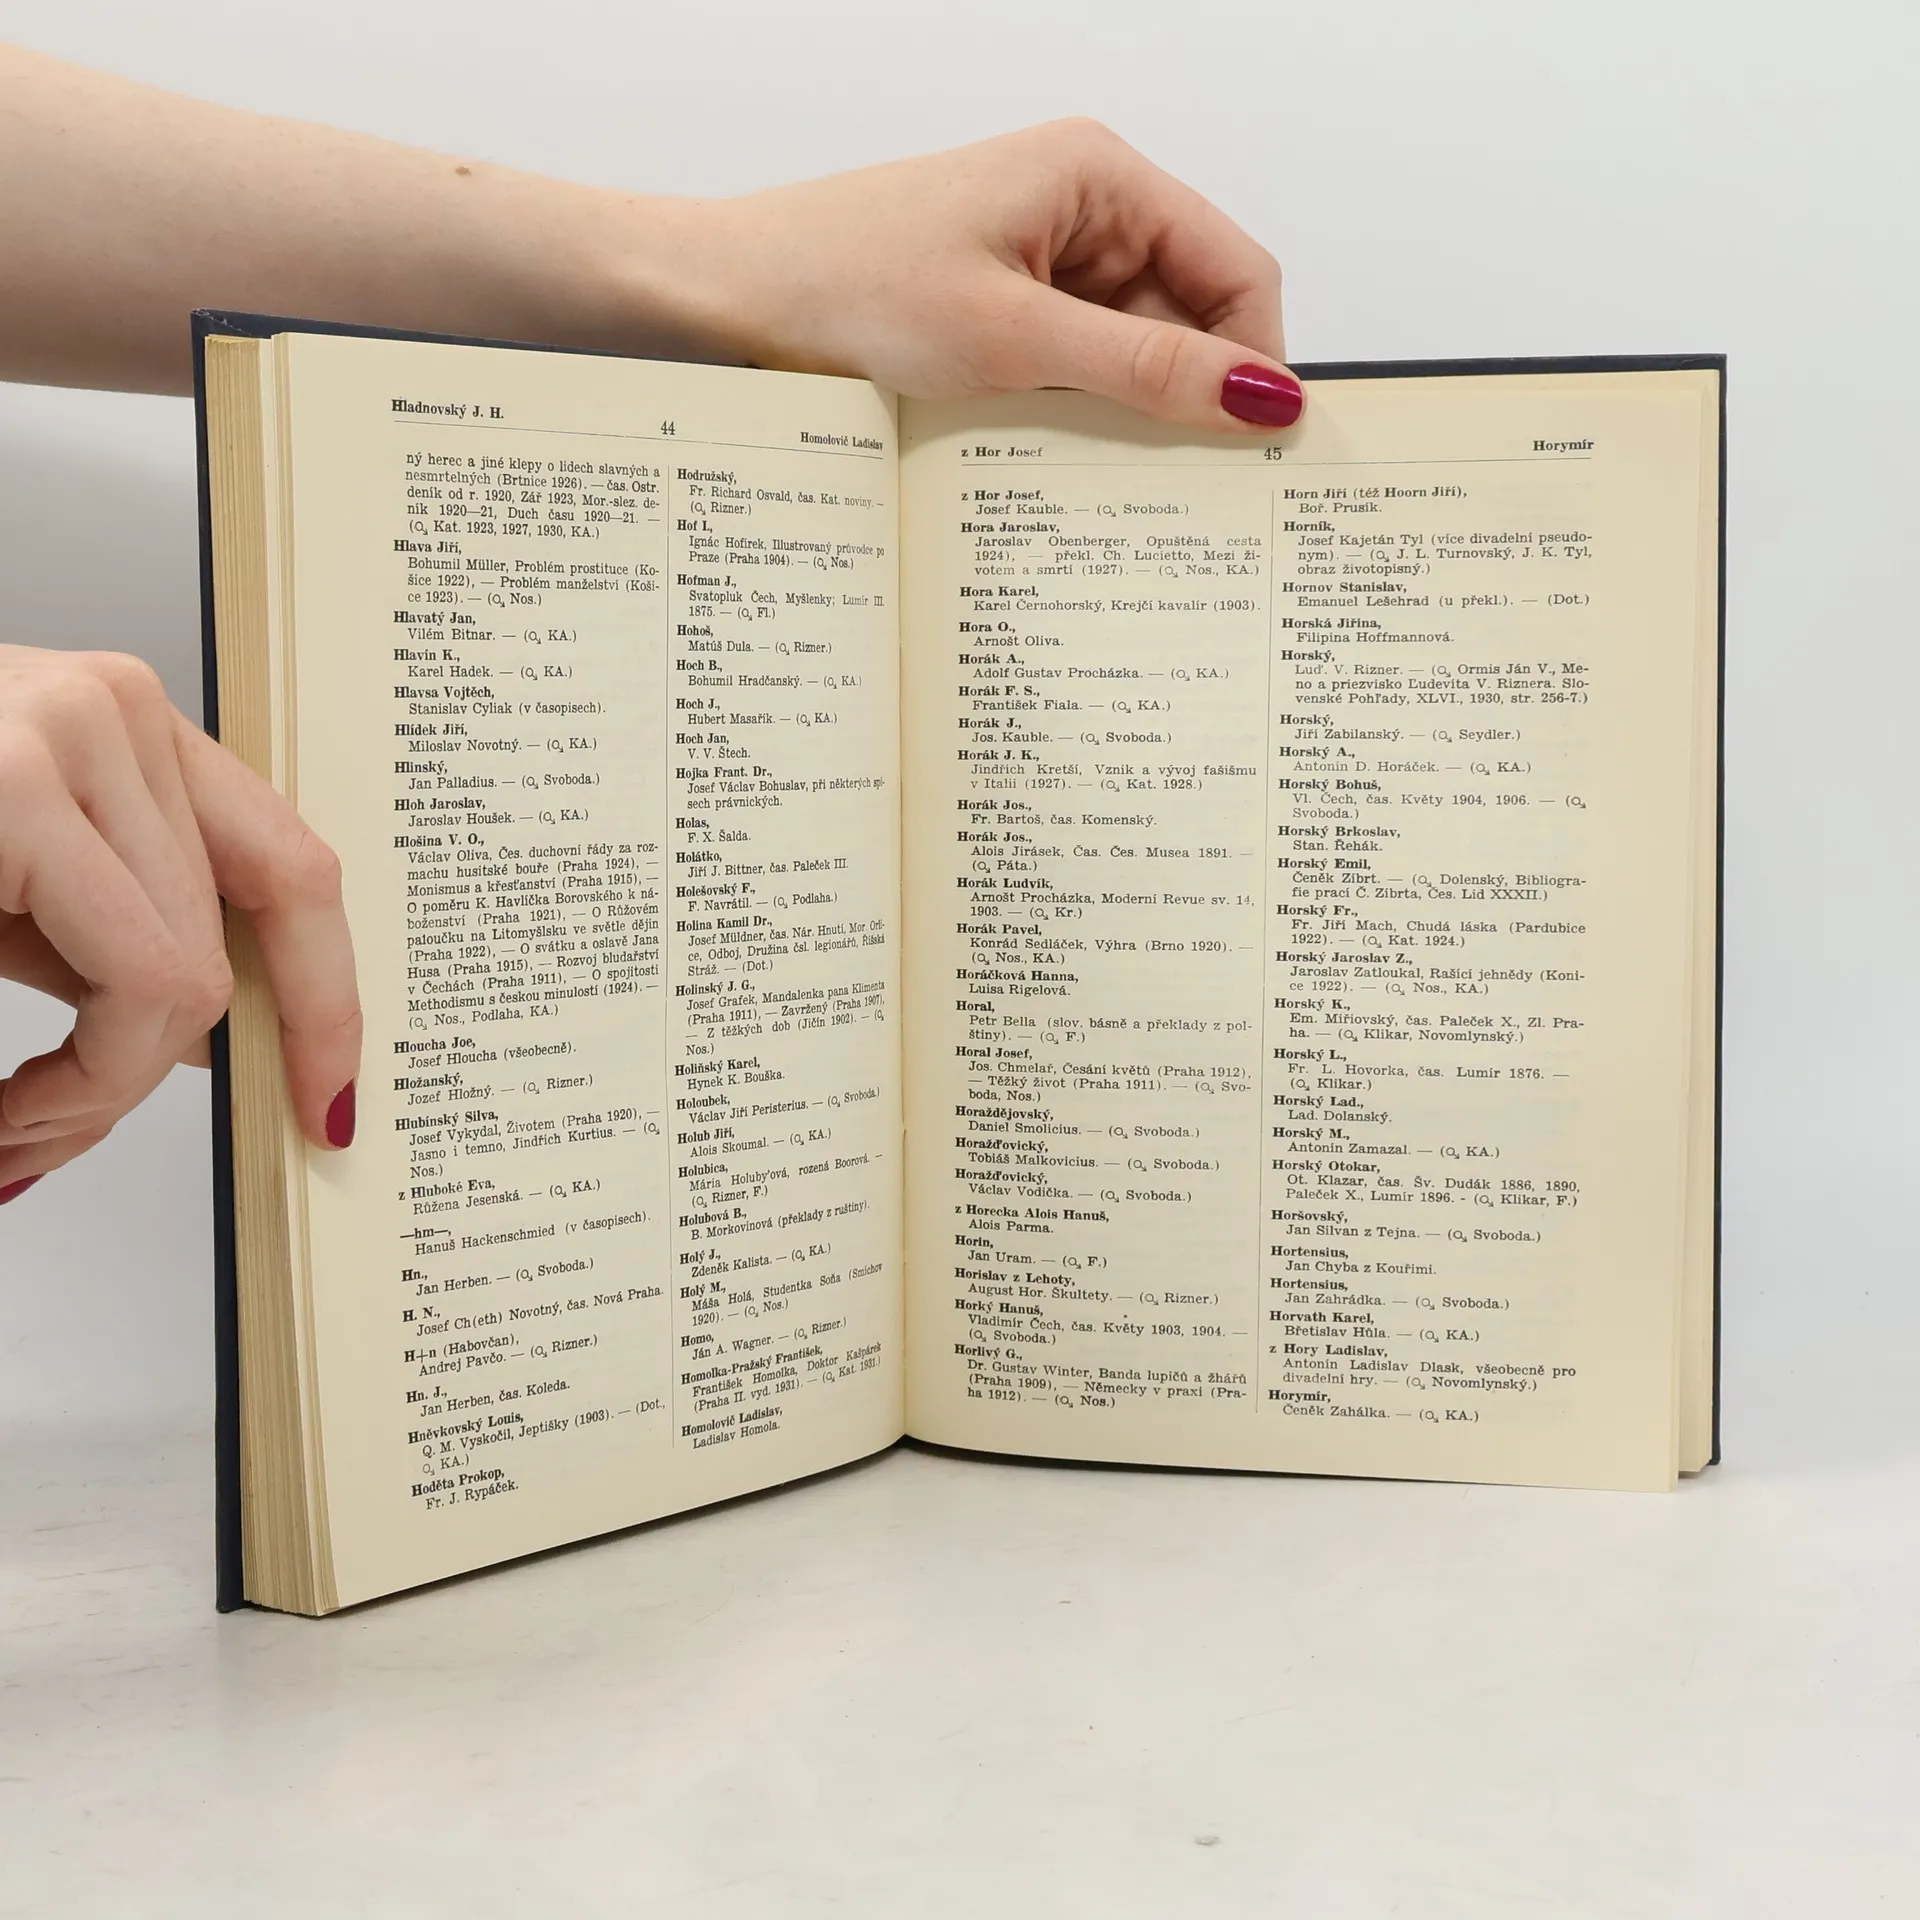 Hladnovský J. H.
44
Homolovič Ladislav
ný herec a jiné klepy o lidech slavných a
nesmrtelných (Brtnice 1926). — čas. Ostr.
deník od r. 1920, Zář 1923, Mor.-slez. de-
ník 1920—21, Duch času 1920—21. —
(Q, Kat. 1923, 1927, 1930, KA.)
Hlava Jiří,
Bohumil Müller, Problém prostituce (Ko-
šice 1922), — Problém manželství (Koši-
ce 1923). — (Q, Nos.)
Hlavatý Jan,
Vilém Bitnar. — (Q, KA.)
Hlavin K.,
Karel Hadek. — (Q, KA.)
Hlavsa Vojtěch,
Stanislav Cyliak (v časopisech).
Hlídek Jiří,
Miloslav Novotný. — (Q, KA.)
Hlinský,
Jan Palladius. — (Q, Svoboda.)
Hloh Jaroslav,
Jaroslav Houšek. — (Q, KA.)
Hlošina V. O.,
Václav Oliva, Čes. duchovní řády za roz-
machu husitské bouře (Praha 1924), —
Monismus a křesťanství (Praha 1915), —
O poměru K. Havlíčka Borovského k ná-
boženství (Praha 1921), — O Růžovém
paloučku na Litomyšlsku ve světle dějin
(Praha 1922), — O svátku a oslavě Jana
Husa (Praha 1915), — Rozvoj bludařství
v Čechách (Praha 1911), — O spojitosti
Methodismu s českou minulostí (1924). —
(Q, Nos., Podlaha, KA.)
Hloucha Joe,
Josef Hloucha (všeobecně).
Hložanský,
Jozef Hložný. — (Q, Rizner.)
Hlubínský Silva,
Josef Vykydal, Životem (Praha 1920), —
Jasno i temno, Jindřich Kurtius. — (Q,
Nos.)
z Hluboké Eva,
Růžena Jesenská. — (Q, KA.)
—hm—,
Hanuš Hackenschmied (v časopisech).
Hn.,
Jan Herben. — (Q, Svoboda.)
H. N.,
Josef Ch(eth) Novotný, čas. Nová Praha.
H+n (Habovčan),
Andrej Pavčo. — (Q, Rizner.)
Hn. J.,
Jan Herben, čas. Koleda.
Hněvkovský Louis,
Q. M. Vyskočil, Jeptišky (1903). — (Dot.,
Q, KA.)
Hoděta Prokop,
Fr. J. Rypáček.
Hodružský,
Fr. Richard Osvald, čas. Kat. noviny. —
(Q, Rizner.)
Hof I.,
Ignác Hofírek, Illustrovaný průvodce po
Praze (Praha 1904). — (Q, Nos.)
Hofman J.,
Svatopluk Čech, Myšlenky; Lumír III.
1875. — (Q, Fl.)
Hohoš,
Matúš Dula. — (Q, Rizner.)
Hoch B.,
Bohumil Hradčanský. — (Q, KA.)
Hoch J.,
Hubert Masařík. — (Q, KA.)
Hoch Jan,
V. V. Štech.
Hojka Frant. Dr.,
Josef Václav Bohuslav, při některých spi-
sech právnických.
Holas,
F. X. Šalda.
Holátko,
Jiří J. Bittner, čas. Paleček III.
Holešovský F.,
F. Navrátil. — (Q, Podlaha.)
Holina Kamil Dr.,
Josef Müldner, čas. Nár. Hnutí, Mor. Orli-
ce, Odboj, Družina čsl. legionářů, Říšská
Stráž. — (Dot.)
Holinský J. G.,
Josef Grafek, Mandalenka pana Klimenta
(Praha 1911), — Zavržený (Praha 1907),
— Z těžkých dob (Jičín 1902). — (Q,
Nos.)
Holiňský Karel,
Hynek K. Bouška.
Holoubek,
Václav Jiří Peristerius. — (Q, Svoboda.)
Holub Jiří,
Alois Skoumal. — (Q, KA.)
Holubica,
Mária Holuby'ová, rozená Boorová. —
(Q, Rizner, F.)
Holubová B.,
B. Morkovinová (překlady z ruštiny).
Holý J.,
Zdeněk Kalista. — (Q, KA.)
Holý M.,
Máša Holá, Studentka Soňa (Smíchov
1920). — (Q, Nos.)
Homo,
Ján A. Wagner. — (Q, Rizner.)
Homolka-Pražský František,
František Homolka, Doktor Kašpárek
(Praha II. vyd. 1931). — (Q, Kat. 1931.)
Homolovič Ladislav,
Ladislav Homola.
z Hor Josef
45
Horymír
z Hor Josef,
Josef Kauble. — (Q, Svoboda.)
Hora Jaroslav,
Jaroslav Obenberger, Opuštěná cesta
1924), — překl. Ch. Lucietto, Mezi ži-
votem a smrtí (1927). — (Q, Nos., KA.)
Hora Karel,
Karel Černohorský, Krejčí kavalír (1903).
Hora O.,
Arnošt Oliva.
Horák A.,
Adolf Gustav Procházka. — (Q, KA.)
Horák F. S.,
František Fiala. — (Q, KA.)
Horák J.,
Jos. Kauble. — (Q, Svoboda.)
Horák J. K.,
Jindřich Kretší, Vznik a vývoj fašismu
v Italii (1927). — (Q, Kat. 1928.)
Horák Jos.,
Fr. Bartoš, čas. Komenský.
Horák Jos.,
Alois Jirásek, Čas. Čes. Musea 1891. —
(Q, Páta.)
Horák Ludvík,
Arnošt Procházka, Moderní Revue sv. 14,
1903. — (Q, Kr.)
Horák Pavel,
Konrád Sedláček, Výhra (Brno 1920). —
(Q, Nos., KA.)
Horáčková Hanna,
Luisa Rigelová.
Horal,
Petr Bella (slov. básně a překlady z pol-
štiny). — (Q, F.)
Horal Josef,
Jos. Chmelař, Česání květů (Praha 1912),
— Těžký život (Praha 1911). — (Q, Svo-
boda, Nos.)
Horaždějovský,
Daniel Smolicius. — (Q, Svoboda.)
Horažďovický,
Tobiáš Malkovicius. — (Q, Svoboda.)
Horažďovický,
Václav Vodička. — (Q, Svoboda.)
z Horecka Alois Hanuš,
Alois Parma.
Horin,
Jan Uram. — (Q, F.)
Horislav z Lehoty,
August Hor. Škultety. — (Q, Rizner.)
Horký Hanuš,
Vladimír Čech, čas. Květy 1903, 1904. —
(Q, Svoboda.)
Horlivý G.,
Dr. Gustav Winter, Banda lupičů a žhářů
(Praha 1909), — Německy v praxi (Pra-
ha 1912). — (Q, Nos.)
Horn Jiří (též Hoorn Jiří),
Boř. Prusík.
Horník,
Josef Kajetán Tyl (více divadelní pseudo-
nym). — (Q, J. L. Turnovský, J. K. Tyl,
obraz životopisný.)
Hornov Stanislav,
Emanuel Lešehrad (u překl.). — (Dot.)
Horská Jiřina,
Filipina Hoffmannová.
Horský,
Luď. V. Rizner. — (Q, Ormis Ján V., Me-
no a priezvisko Ľudevíta V. Riznera. Slo-
venské Pohľady, XLVI., 1930, str. 256-7.)
Horský,
Jiří Zabilanský. — (Q, Seydler.)
Horský A.,
Antonín D. Horáček. — (Q, KA.)
Horský Bohuš,
Vl. Čech, čas. Květy 1904, 1906. — (Q,
Svoboda.)
Horský Brkoslav,
Stan. Řehák.
Horský Emil,
Čeněk Zíbrt. — (Q, Dolenský, Bibliogra-
fie prací Č. Zíbrta, Čes. Lid XXXII.)
Horský Fr.,
Fr. Jiří Mach, Chudá láska (Pardubice
1922). — (Q, Kat. 1924.)
Horský Jaroslav Z.,
Jaroslav Zatloukal, Rašící jehnědy (Koni-
ce 1922). — (Q, Nos., KA.)
Horský K.,
Em. Miřiovský, čas. Paleček X., Zl. Pra-
ha. — (Q, Klikar, Novomlynský.)
Horský L.,
Fr. L. Hovorka, čas. Lumír 1876. —
(Q, Klikar.)
Horský Lad.,
Lad. Dolanský.
Horský M.,
Antonín Zamazal. — (Q, KA.)
Horský Otokar,
Ot. Klazar, čas. Šv. Dudák 1886, 1890,
Paleček X., Lumír 1896. - (Q, Klikar, F.)
Horšovský,
Jan Silvan z Tejna. — (Q, Svoboda.)
Hortensius,
Jan Chyba z Kouřimi.
Hortensius,
Jan Zahrádka. — (Q, Svoboda.)
Horvath Karel,
Břetislav Hůla. — (Q, KA.)
z Hory Ladislav,
Antonín Ladislav Dlask, všeobecně pro
divadelní hry. — (Q, Novomlynský.)
Horymír,
Čeněk Zahálka. — (Q, KA.)